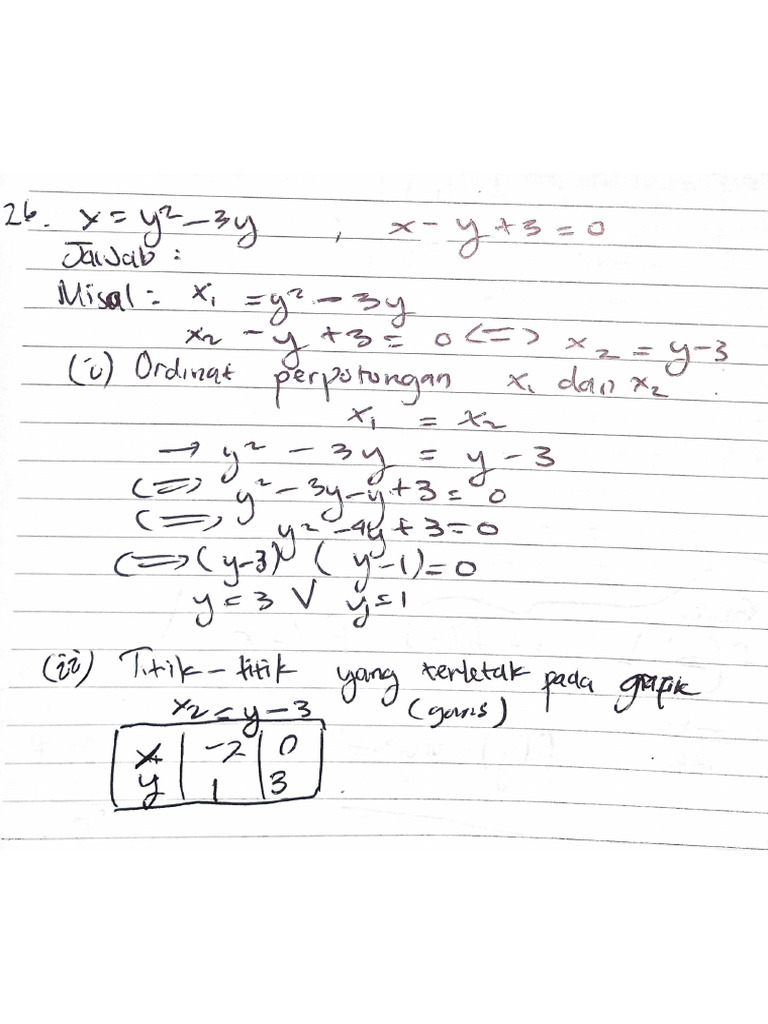 26. x = y² - 3y , x - y + 3 = 0
Jawab :
Misal : x₁ = y² - 3y
x₂ - y + 3 = 0 <=> x₂ = y-3
(i) Ordinat perpotongan x₁ dan x₂.
x₁ = x₂
→ y² - 3y = y - 3
<=> y² - 3y - y + 3 = 0
<=> y² - 4y + 3 = 0
<=> (y-3) (y-1) = 0
y = 3 V y = 1
(ii) Titik-titik yang terletak pada grafik
x₂ = y - 3 (garis)
x | -2 | 0
y | 1 | 3